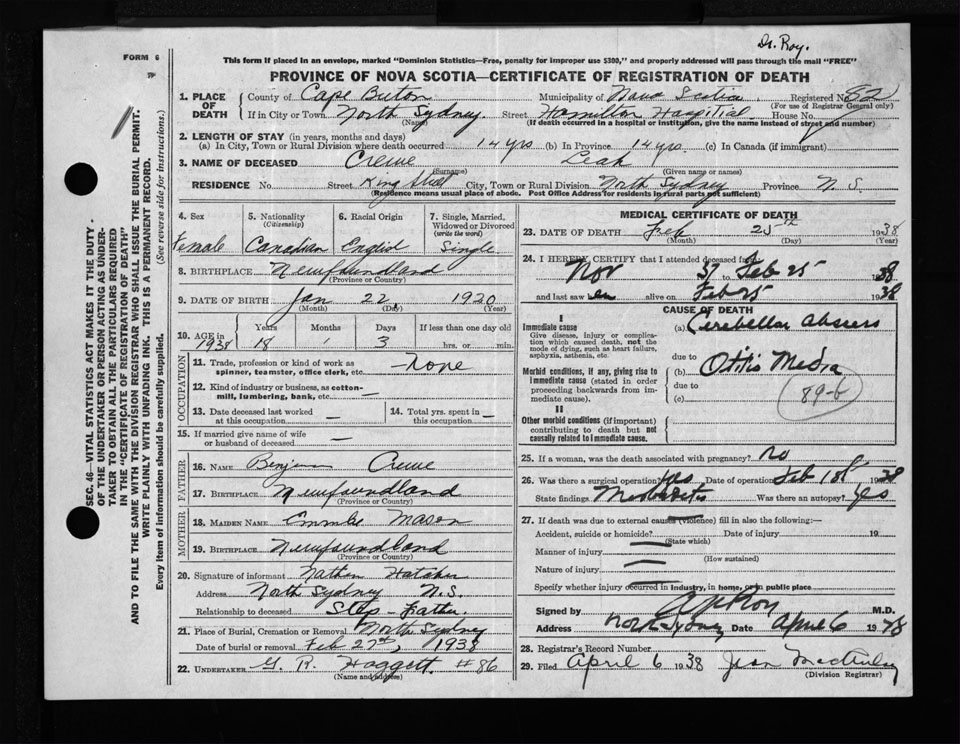 Dr. Roy.
FORM 6
This form if placed in an envelope, marked "Dominion Statistics—Free, penalty for improper use $300," and properly addressed will pass through the mail "FREE"
PROVINCE OF NOVA SCOTIA—CERTIFICATE OF REGISTRATION OF DEATH
1. PLACE OF DEATH County of Cape Breton Municipality of Nova Scotia Registered No. 82
(For use of Registrar General only)
If in City or Town North Sydney. Street Hamilton Hospital House No.
(Name) (If death occurred in a hospital or institution, give the name instead of street and number)
2. LENGTH OF STAY (in years, months and days)
(a) In City, Town or Rural Division where death occurred 14 yrs (b) In Province 14 yrs. (c) In Canada (if immigrant)
3. NAME OF DECEASED Crewe Leah
(Surname) (Given name or names)
RESIDENCE No. Street King Street City, Town or Rural Division North Sydney Province N. S.
(Residence means usual place of abode. Post Office Address for residents in rural parts not sufficient)
4. Sex Female
5. Nationality (Citizenship) Canadian
6. Racial Origin English
7. Single, Married, Widowed or Divorced (write the word) Single
8. BIRTHPLACE Newfoundland
(Province or Country)
9. DATE OF BIRTH Jan 22, 1920
(Month) (Day) (Year)
10. AGE in 1938 Years 18 Months 1 Days 3 If less than one day old hrs. or min.
OCCUPATION
11. Trade, profession or kind of work as spinner, teamster, office clerk, etc. — none
12. Kind of industry or business, as cotton-mill, lumbering, bank, etc. —
13. Date deceased last worked at this occupation — 14. Total yrs. spent in this occupation —
15. If married give name of wife or husband of deceased —
FATHER
16. NAME Crewe
17. BIRTHPLACE Newfoundland
(Province or Country)
MOTHER
18. MAIDEN NAME Mason
19. BIRTHPLACE Newfoundland
(Province or Country)
20. Signature of informant Nathan Hatcher
Address North Sydney N.S.
Relationship to deceased Step-Father.
21. Place of Burial, Cremation or Removal North Sydney
Date of burial or removal Feb 27th, 1938
22. UNDERTAKER G. R. Haggett #86
(Name and address)
MEDICAL CERTIFICATE OF DEATH
23. DATE OF DEATH Feb 25th 1938
(Month) (Day) (Year)
24. I HEREBY CERTIFY that I attended deceased from
Nov 37 to Feb 25 1938
and last saw alive on Feb 25 1938
CAUSE OF DEATH
I
Immediate cause (a) Cerebellar Abscess
Give disease, injury or complication which caused death, not the mode of dying, such as heart failure, asphyxia, asthenia, etc.
due to
Morbid conditions, if any, giving rise to immediate cause (stated in order proceeding backwards from immediate cause). (b) Otitis Media
due to
(c)
89-b
II
Other morbid conditions (if important) contributing to death but not causally related to immediate cause.
25. If a woman, was the death associated with pregnancy? no
26. Was there a surgical operation? Yes Date of operation Feb 1938
State findings Mastoiditis Was there an autopsy? Yes
27. If death was due to external causes (violence) fill in also the following:—
Accident, suicide or homicide? Date of injury 19
(State which)
Manner of injury
(How sustained)
Nature of injury
Specify whether injury occurred in industry, in home, or in public place
Signed by Roy M.D.
Address North Sydney Date April 6 1938
28. Registrar's Record Number
29. Filed April 6 1938 Jean
(Division Registrar)
SEC. 46—VITAL STATISTICS ACT MAKES IT THE DUTY OF THE UNDERTAKER OR PERSON ACTING AS UNDERTAKER TO OBTAIN ALL THE PARTICULARS REQUIRED IN THE "CERTIFICATE OF REGISTRATION OF DEATH" AND TO FILE THE SAME WITH THE DIVISION REGISTRAR WHO SHALL ISSUE THE BURIAL PERMIT.
WRITE PLAINLY WITH UNFADING INK. THIS IS A PERMANENT RECORD.
Every item of information should be carefully supplied. (See reverse side for instructions.)